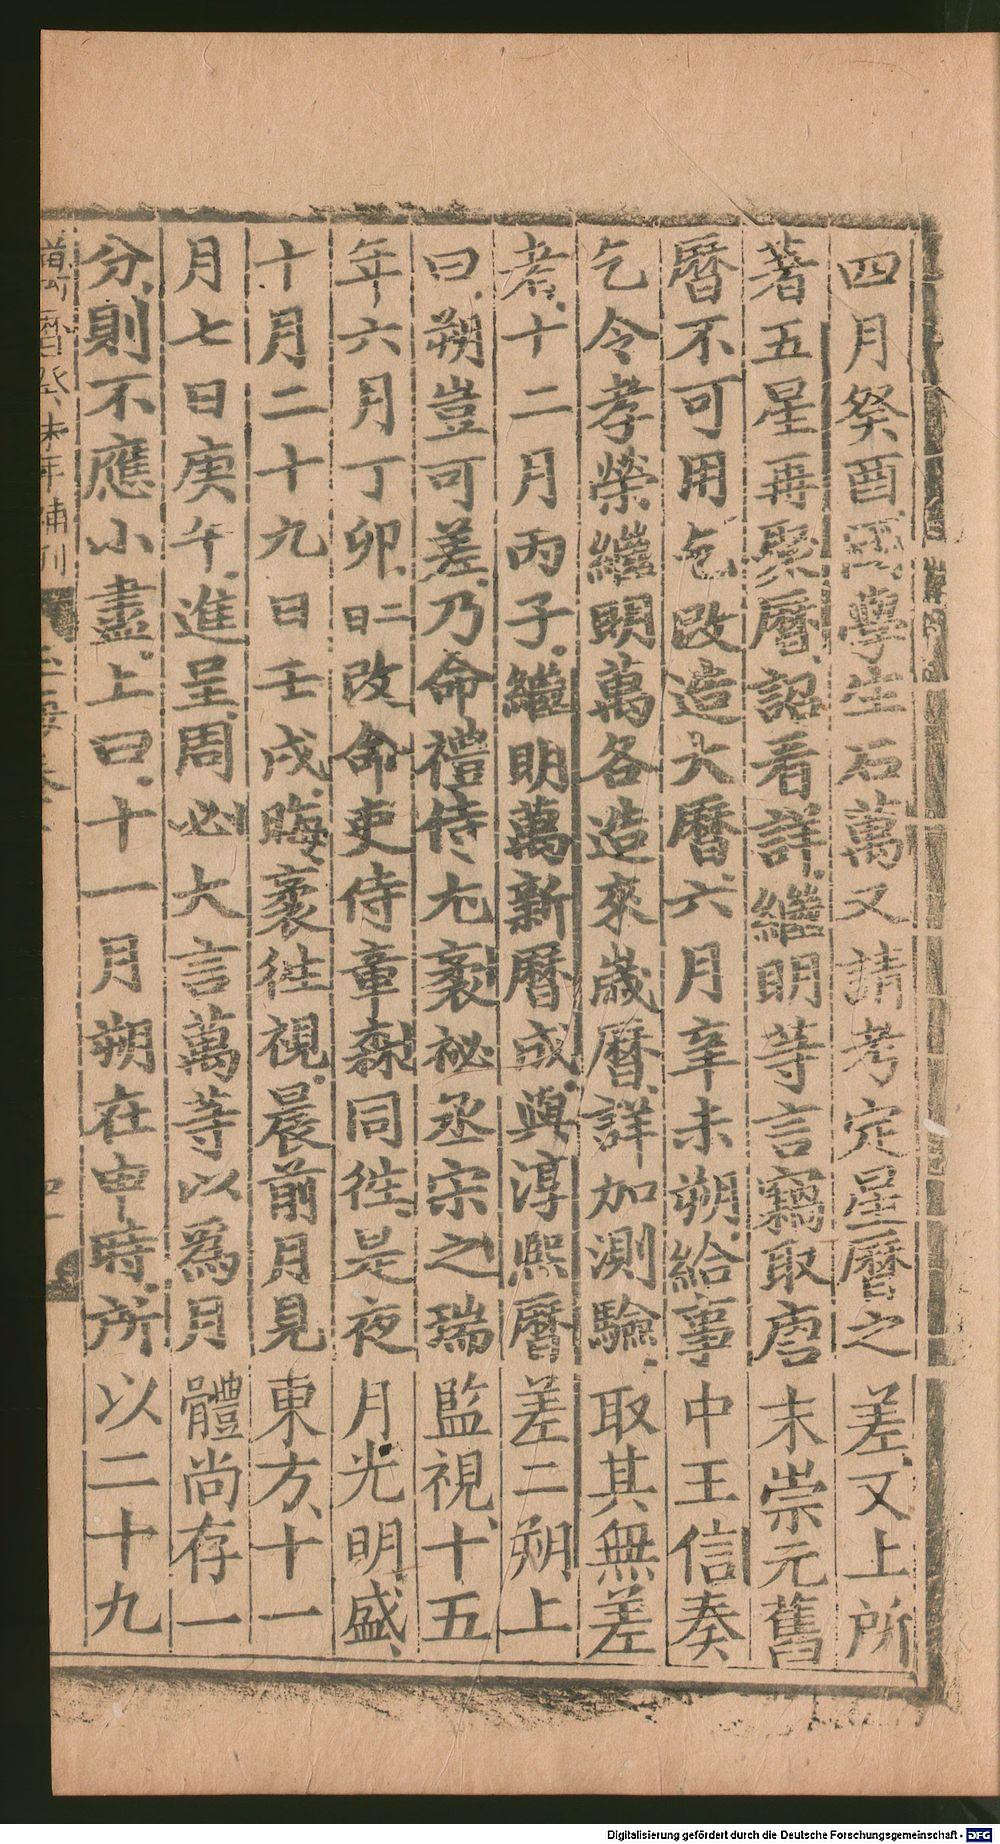 四月癸酉國學生石萬又請考定星曆之差又上所
著五星再聚曆詔看詳繼明等言竊取唐末崇元舊
曆不可用乞改造大曆六月辛未朔給事中王信奏
乞令孝榮繼明萬各造來歲曆詳加測驗取其無差
者十二月丙子繼明萬新曆成與淳熙曆差二朔上
曰朔豈可差乃命禮侍尤袤祕丞宋之瑞監視十五
年六月丁卯二日改命吏侍章森同往是夜月光明盛
十月二十九日壬戌晦袤往視晨前月見東方十一
月七日庚午進呈周必大言萬等以爲月體尚存一
分則不應小盡上曰十一月朔在申時所以二十九
萬曆癸未年補刊
Digitalisierung gefördert durch die Deutsche Forschungsgemeinschaft - DFG